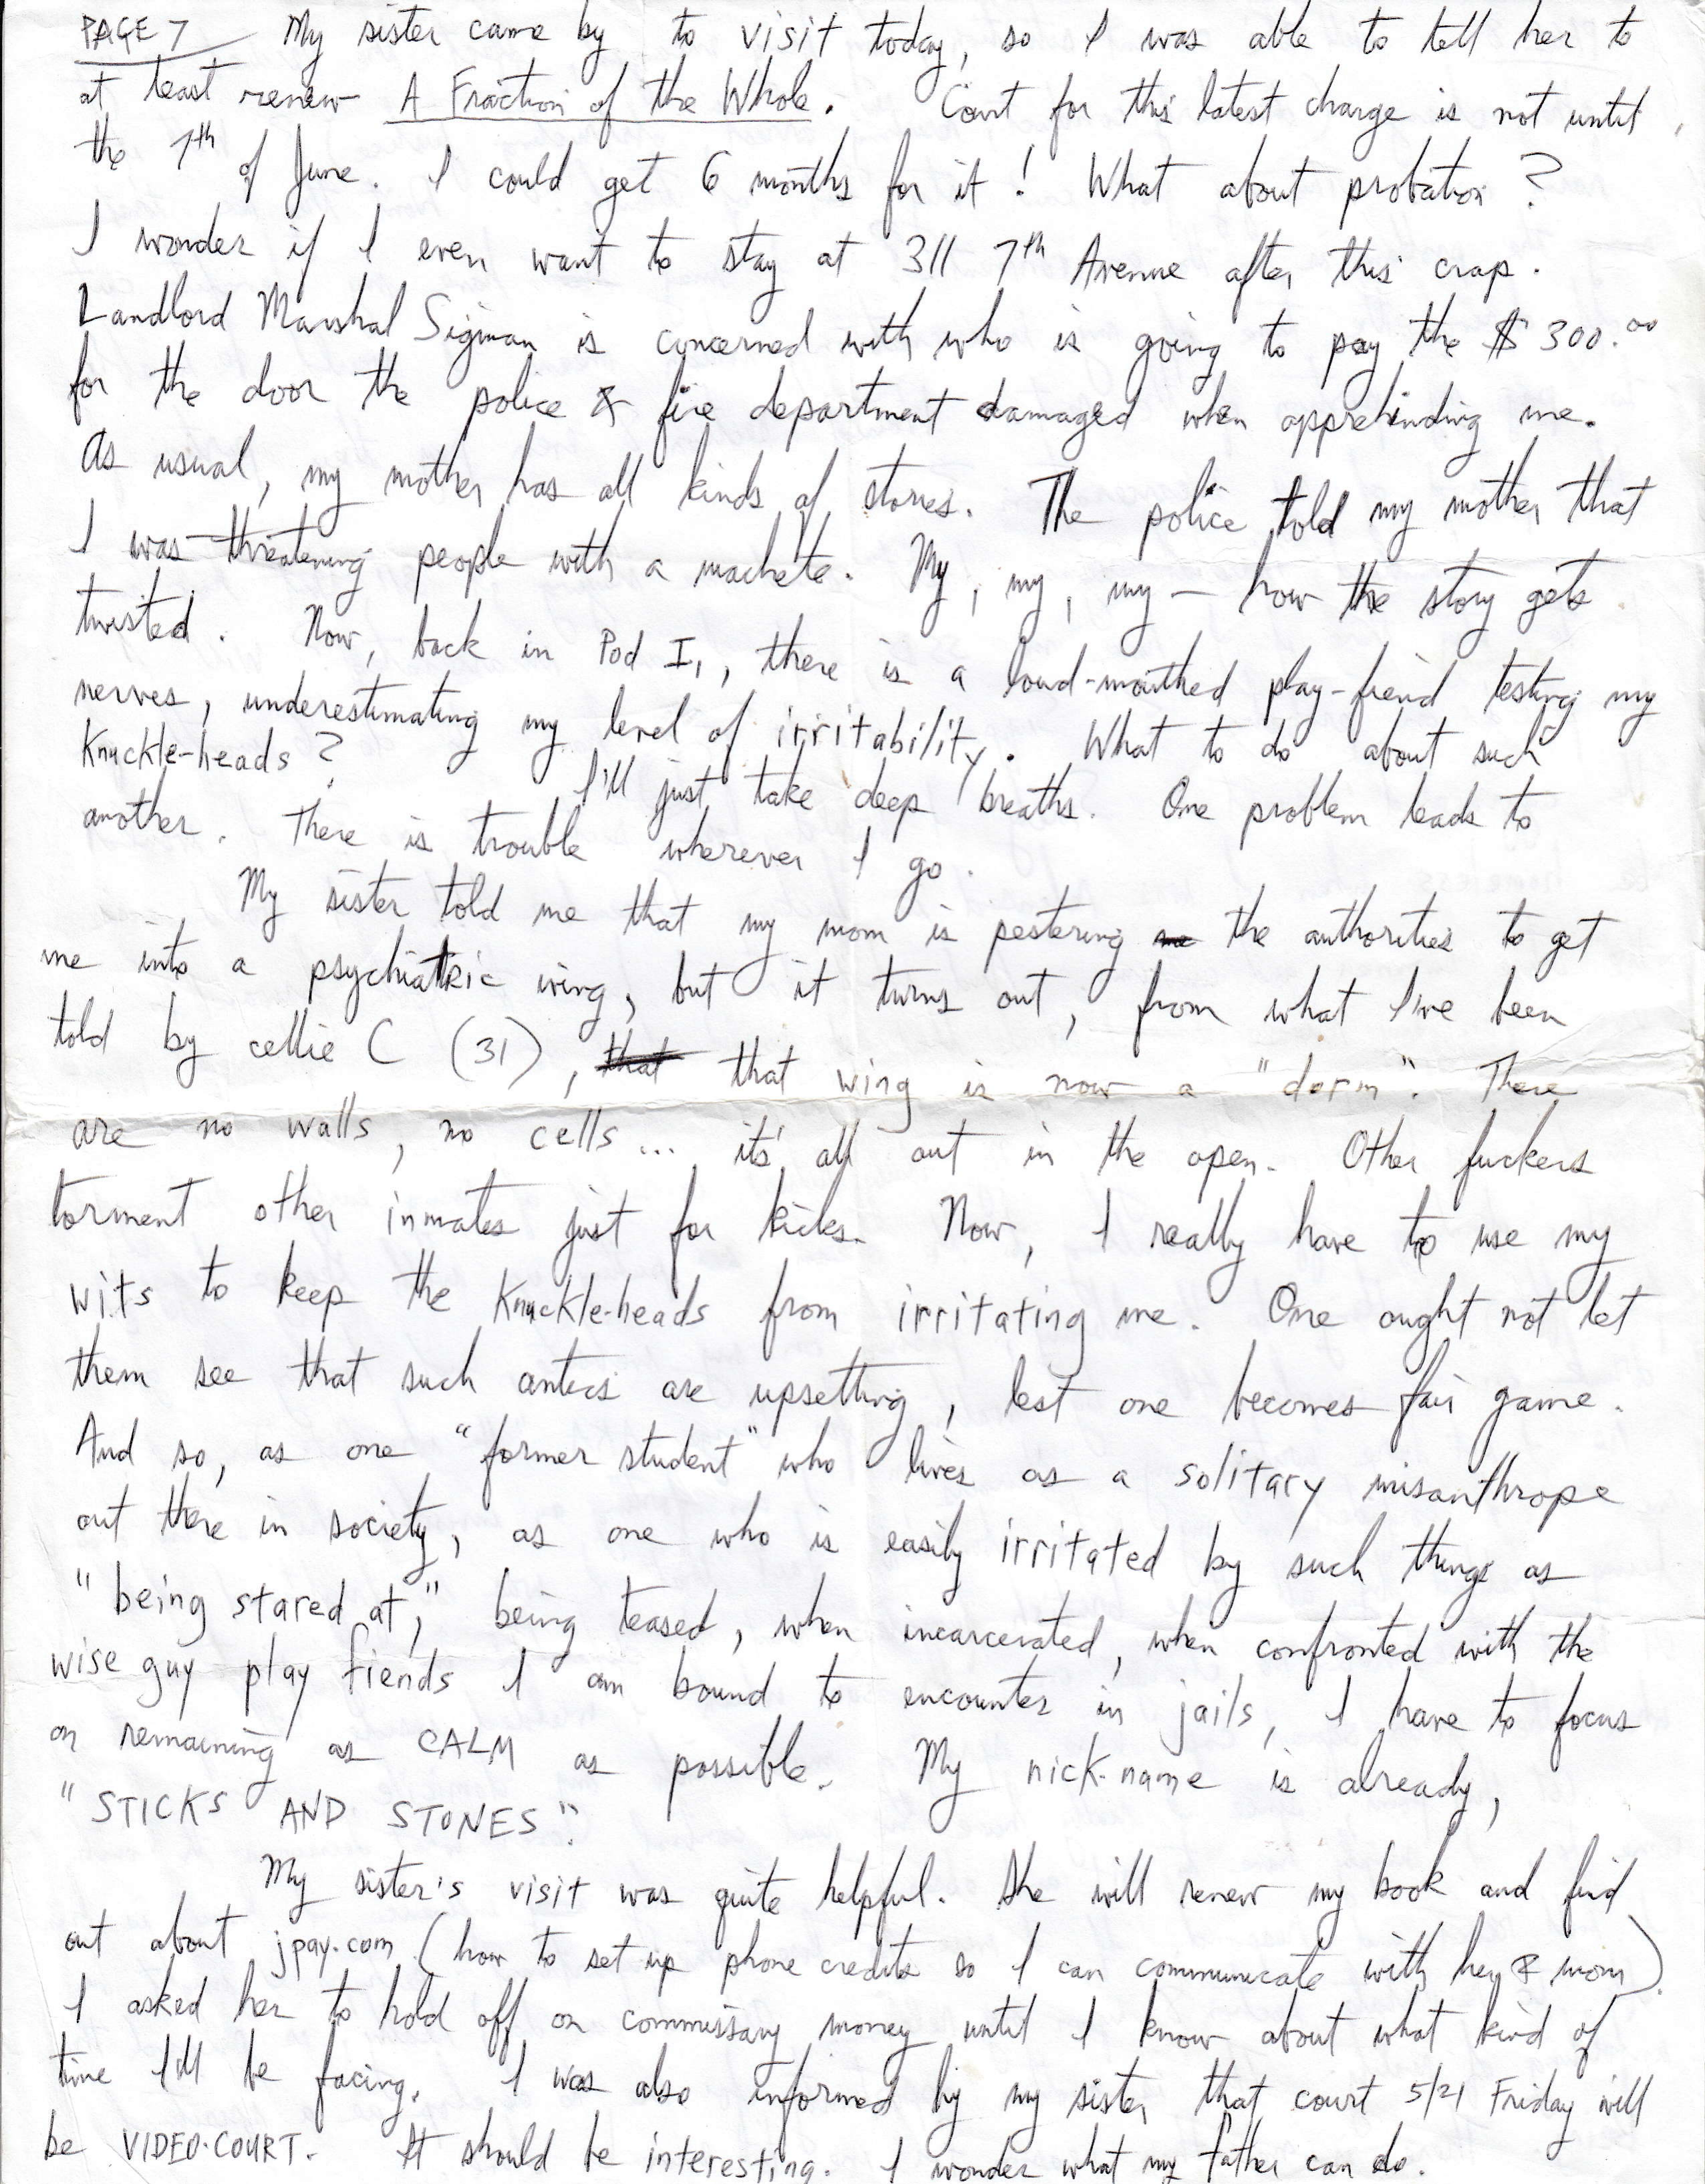 PAGE 7 My sister came by to visit today, so I was able to tell her to
at least renew A Fraction of the Whole. Court for this latest charge is not until
the 7th of June. I could get 6 months for it! What about probation?
I wonder if I even want to stay at 311 7th Avenue after this crap.
Landlord Marshal Sigman is concerned with who is going to pay the $300.00
for the door the police & fire department damaged when apprehending me.
As usual, my mother has all kinds of stories. The police told my mother that
I was threatening people with a machete. My, my, my — how the story gets
twisted. Now, back in Pod I1, there is a loud-mouthed play-fiend testing my
nerves, underestimating my level of irritability. What to do about such
Knuckle-heads? I'll just take deep breaths. One problem leads to
another. There is trouble wherever I go.
My sister told me that my mom is pestering me the authorities to get
me into a psychiatric wing, but it turns out, from what I've been
told by cellie C (31), that that wing is now a "dorm". There
are no walls, no cells... it's all out in the open. Other fuckers
torment other inmates just for kicks. Now, I really have to use my
wits to keep the Knuckle-heads from irritating me. One ought not let
them see that such antics are upsetting, lest one becomes fair game.
And so, as one "former student" who lives as a solitary misanthrope
out there in society, as one who is easily irritated by such things as
"being stared at," being teased, when incarcerated, when confronted with the
wise guy play fiends I am bound to encounter in jails, I have to focus
on remaining as CALM as possible. My nick-name is already,
"STICKS AND STONES".
My sister's visit was quite helpful. She will renew my book and find
out about jpay.com (how to set up phone credits so I can communicate with her & mom).
I asked her to hold off on commissary money until I know about what kind of
time I'll be facing. I was also informed by my sister that court 5/21 Friday will
be VIDEO-COURT. It should be interesting. I wonder what my father can do.